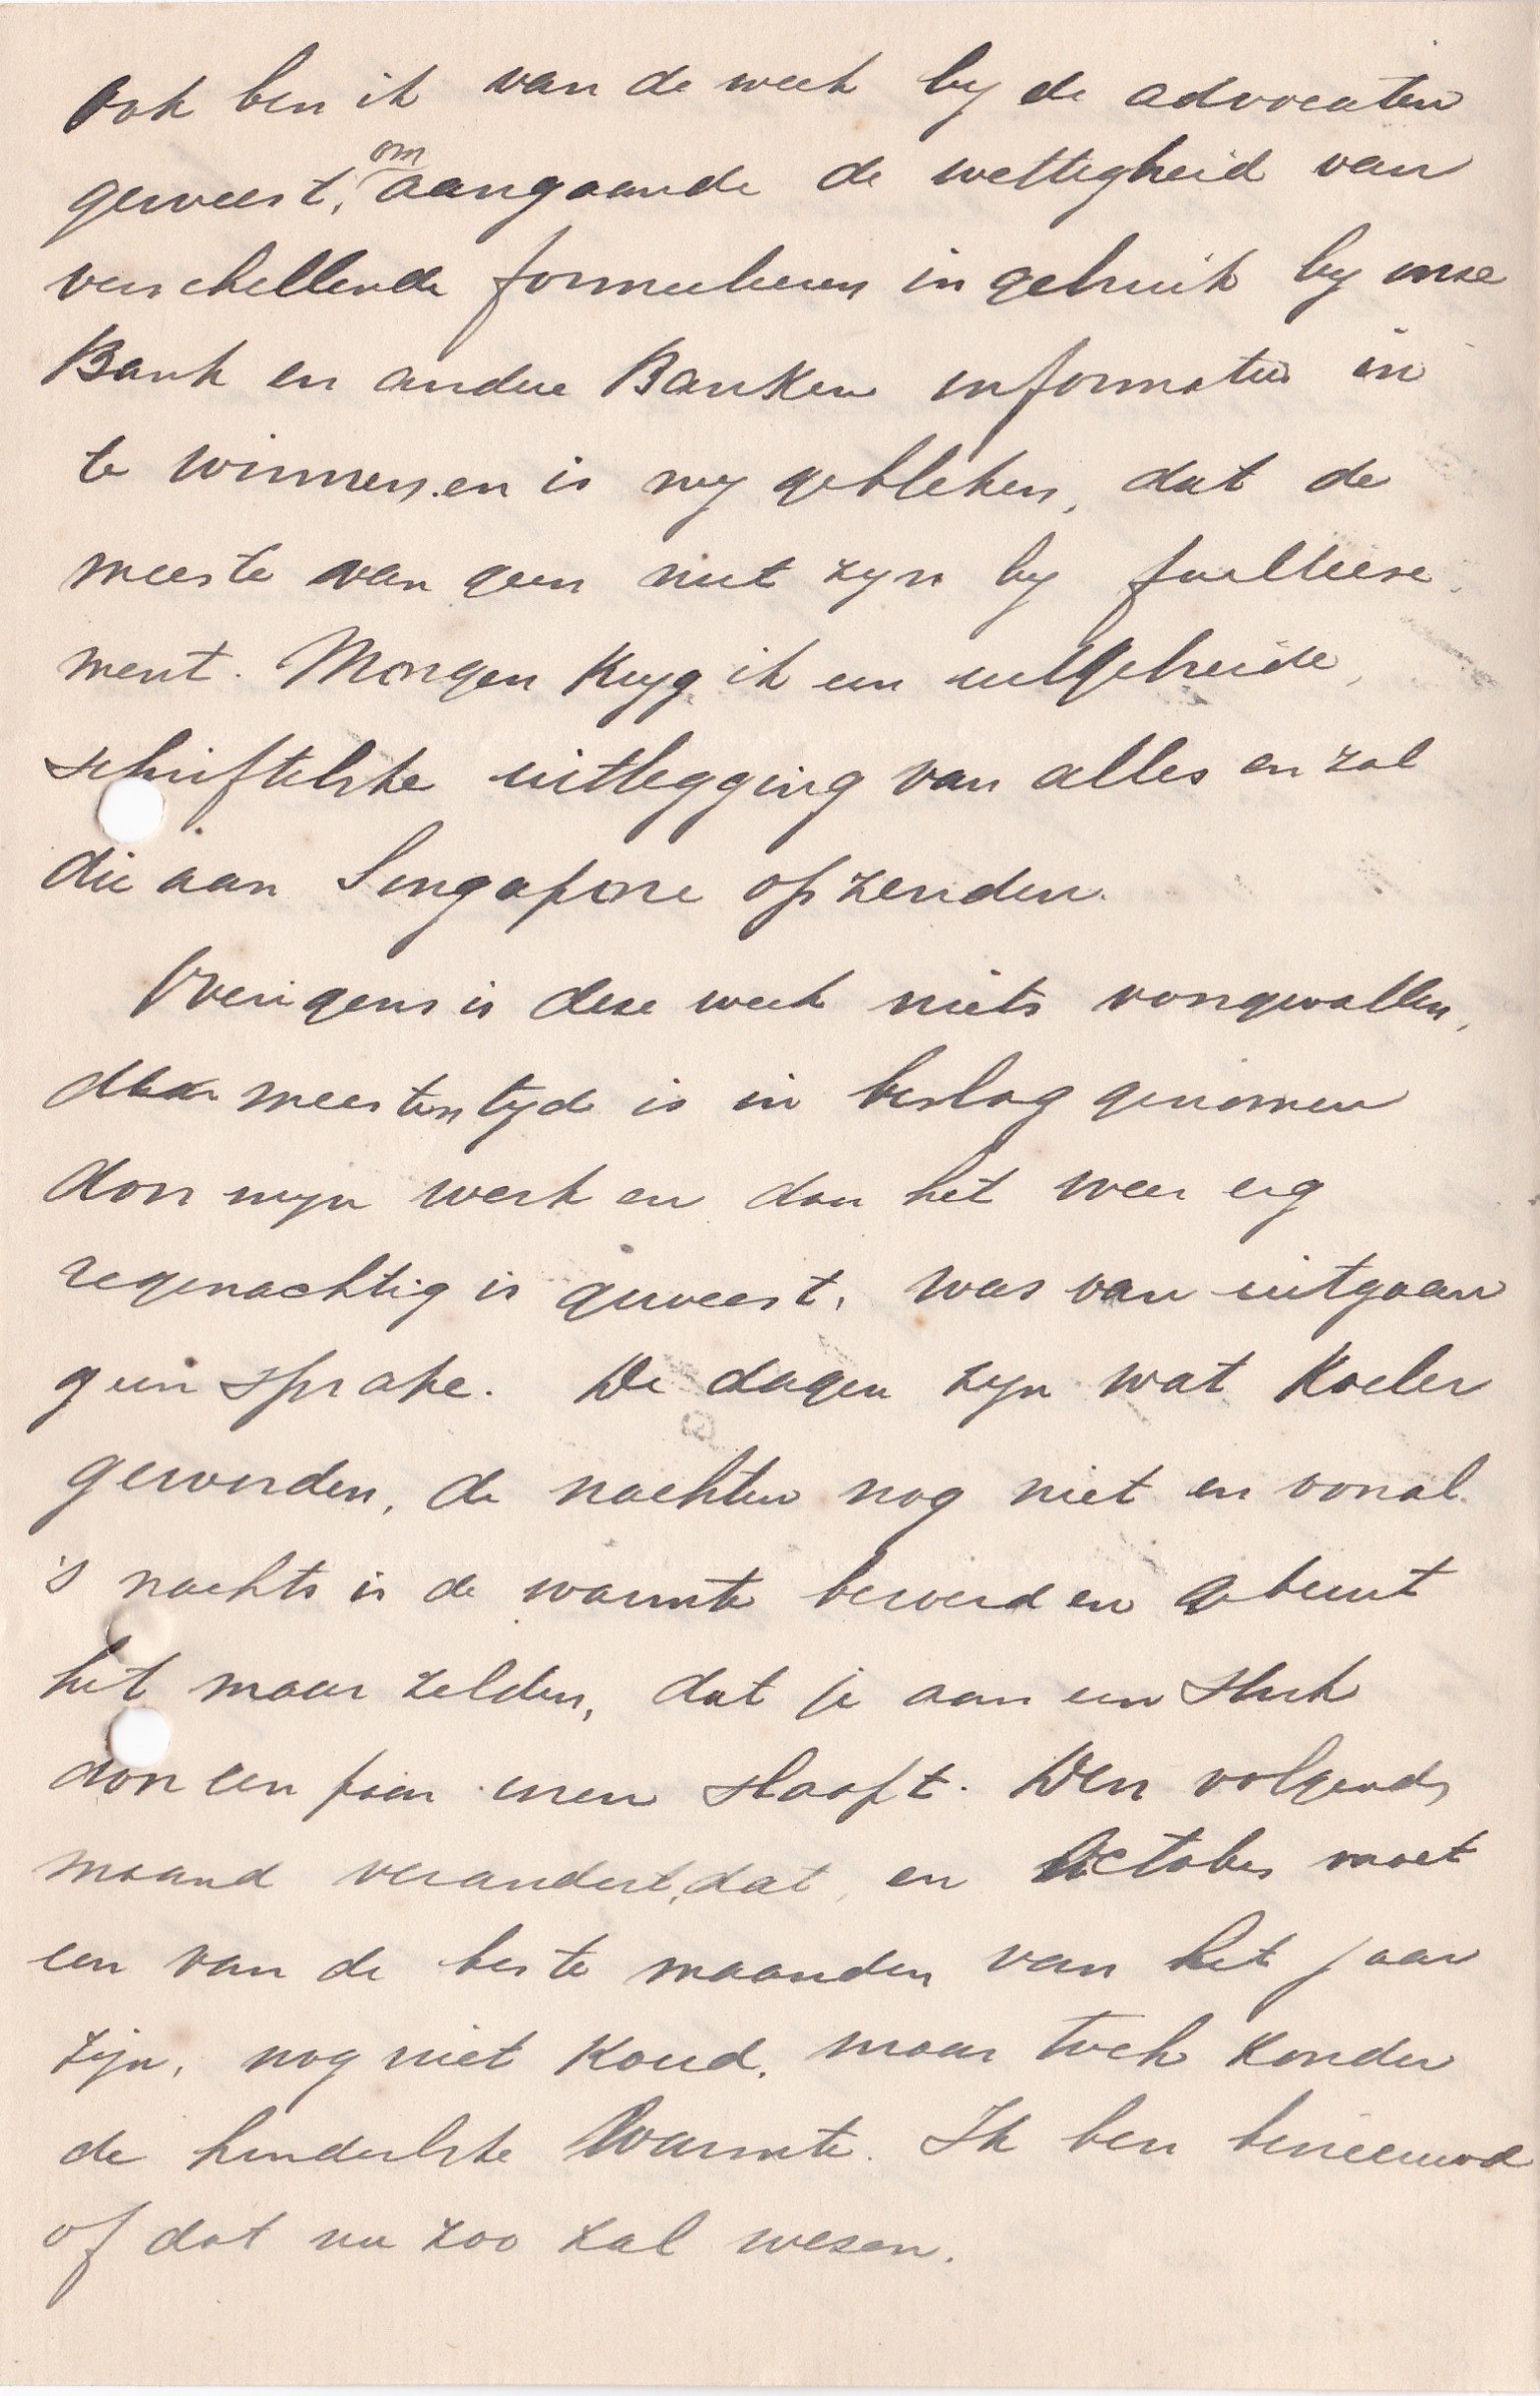 Ook ben ik van de week by de advocaten
geweest, om aangaande de wettigheid van
verschillende formulieren in gebruik by onze
Bank en andere Banken informatie in
te winnen en is my gebleken, dat de
meeste van geen nut zyn by faillisse-
ment. Morgen kryg ik een uitgebreide,
schriftelyke uitlegging van alles en zal
die aan Singapore opzenden.
Overigens is deze week niets voorgevallen,
daar meesten tyd is in beslag genomen
door myn werk en daar het weer erg
regenachtig is geweest, was van uitgaan
geen sprake. De dagen zyn wat koeler
geworden, de nachten nog niet en vooral
's nachts is de warmte bezwarend en gebeurt
het maar zelden, dat je aan een stuk
door een paar uren slaapt. Den volgende
maand verandert dat, en October moet
een van de beste maanden van het jaar
zijn, nog niet koud, maar toch zonder
de hinderlyke warmte. Ik ben benieuwd
of dat nu zoo zal wezen.